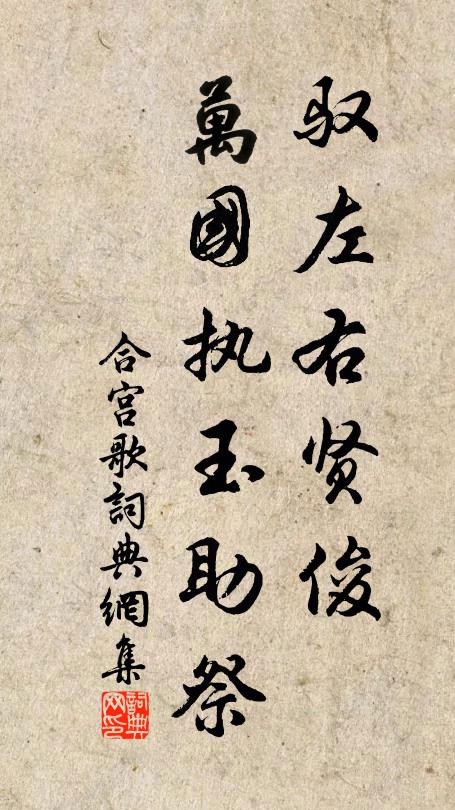 驭左右贤俊
萬國执玉助祭
合宫歌詞典網集
詞典网印